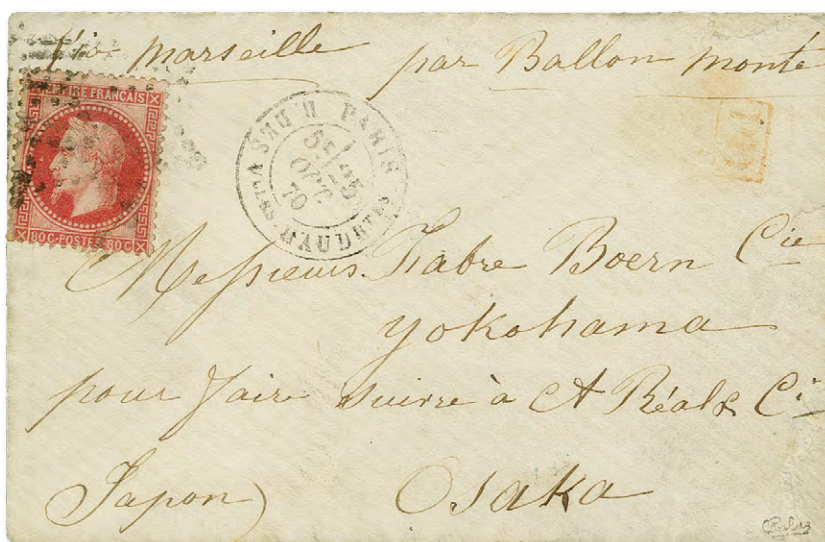 Via marseille par Ballon monté
PIRE FRANÇAIS
80C·POSTES·80C
PARIS
5E
25
OCT
70
P.D
Messieurs Fabre Boern Cie
yokohama
pour faire suivre à A Réal & Cie
Japon) Osaka